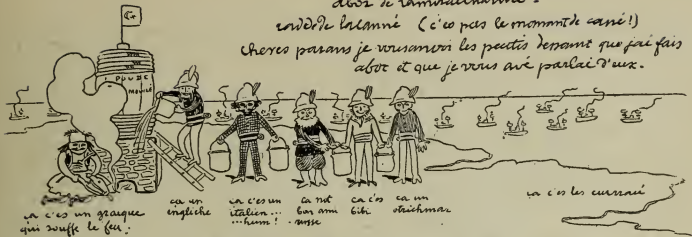 abor de lamiralcharnié.
raderde lacanné (c'es pas le momant de cané!)
cheres parans je vousanvoi les peetis dessaint que jai fais
abor et que je vous avé parlai d'eux.
POUDE
MOUILÉ
ça c'es un graique
qui souffle le feu.
ça un
engliche
ça c'es un
italien...
...hum!
ça not
bon ami
russe
ça c'es
bibi
ça un
otrichman
ça c'es les cuirraué